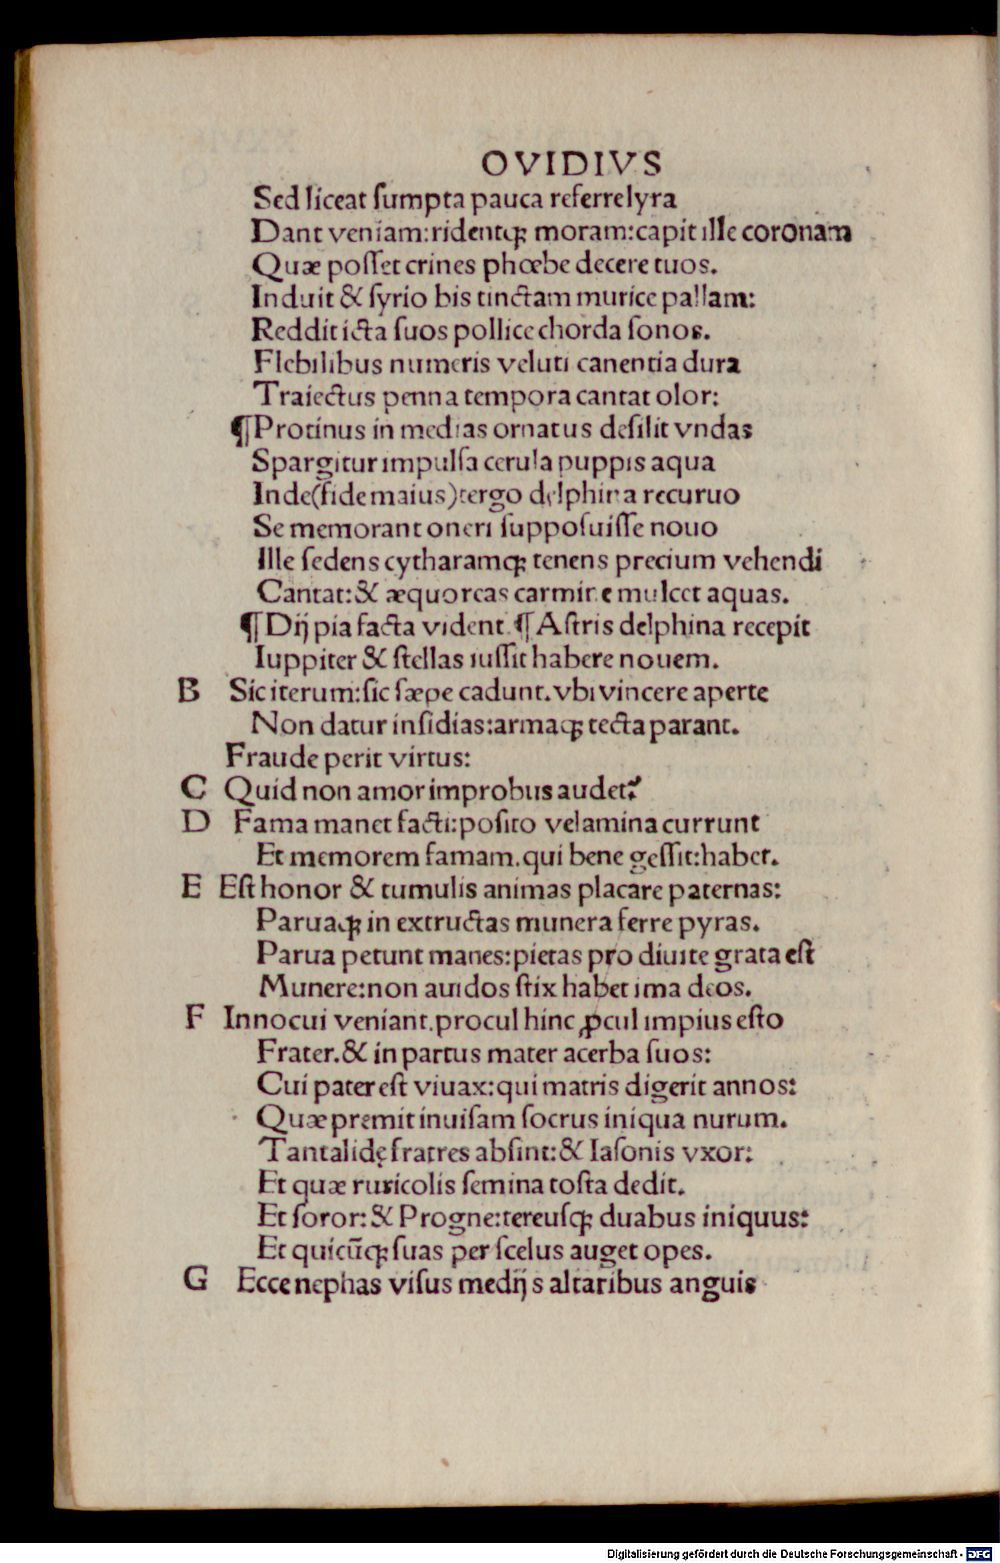 OVIDIVS
Sed liceat ſumpta pauca referre lyra
Dant veniam:ridentqꝫ moram:capit ille coronam
Quæ poſſet crines phœbe decere tuos.
Induit & ſyrio bis tinctam murice pallam:
Reddit icta ſuos pollice chorda ſonos.
Flebilibus numeris veluti canentia dura
Traiectus penna tempora cantat olor:
¶Protinus in medias ornatus deſilit vndas
Spargitur impulſa cerula puppis aqua
Inde(fide maius)tergo delphina recuruo
Se memorant oneri ſuppoſuiſſe nouo
Ille ſedens cytharamqꝫ tenens precium vehendi
Cantat:& æquoreas carmine mulcet aquas.
¶Dij pia facta vident ¶Aſtris delphina recepit
Iuppiter & ſtellas iuſſit habere nouem.
B Sic iterum:ſic ſæpe cadunt.vbi vincere aperte
Non datur inſidias:armaqꝫ tecta parant.
Fraude perit virtus:
C Quid non amor improbus audet?
D Fama manet facti:poſito velamina currunt
Et memorem famam.qui bene geſſit:habet.
E Eſt honor & tumulis animas placare paternas:
Paruaqꝫ in extructas munera ferre pyras.
Parua petunt manes:pietas pro diuite grata eſt
Munere:non auidos ſtix habet ima deos.
F Innocui veniant.procul hinc ꝓcul impius eſto
Frater.& in partus mater acerba ſuos:
Cui pater eſt viuax:qui matris digerit annos:
Quæ premit inuiſam ſocrus iniqua nurum.
Tantalidę fratres abſint:& Iaſonis vxor:
Et quæ ruricolis ſemina toſta dedit.
Et ſoror:& Progne:tereuſqꝫ duabus iniquus:
Et quicūqꝫ ſuas per ſcelus auget opes.
G Ecce nephas viſus medijs altaribus anguis
Digitalisierung gefördert durch die Deutsche Forschungsgemeinschaft - DFG